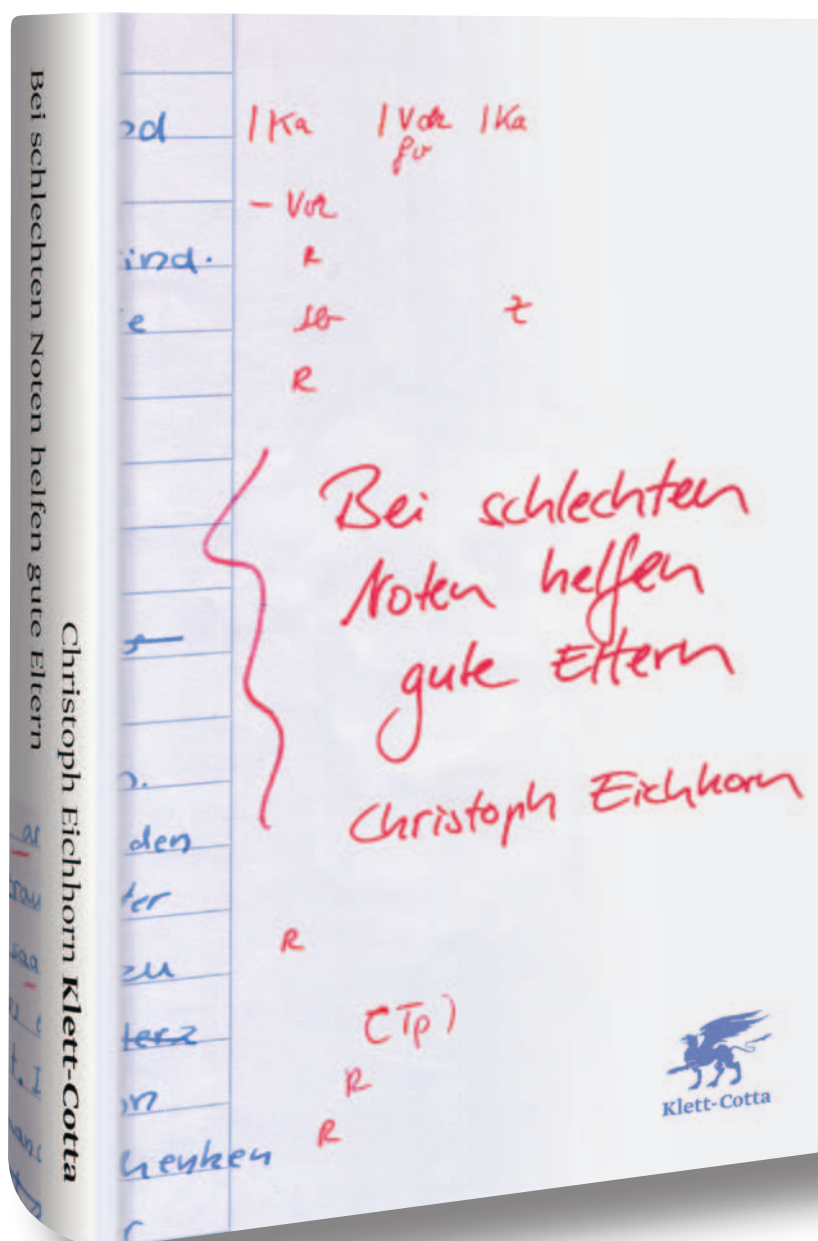 Bei schlechten Noten helfen gute Eltern
Christoph Eichhorn Klett-Cotta
ind.
e
den
zu
henken
r
|Ka |Ka
R
z
R
Bei schlechten
Noten helfen
gute Eltern
Christoph Eichhorn
R
(Tp)
R
R
Klett-Cotta